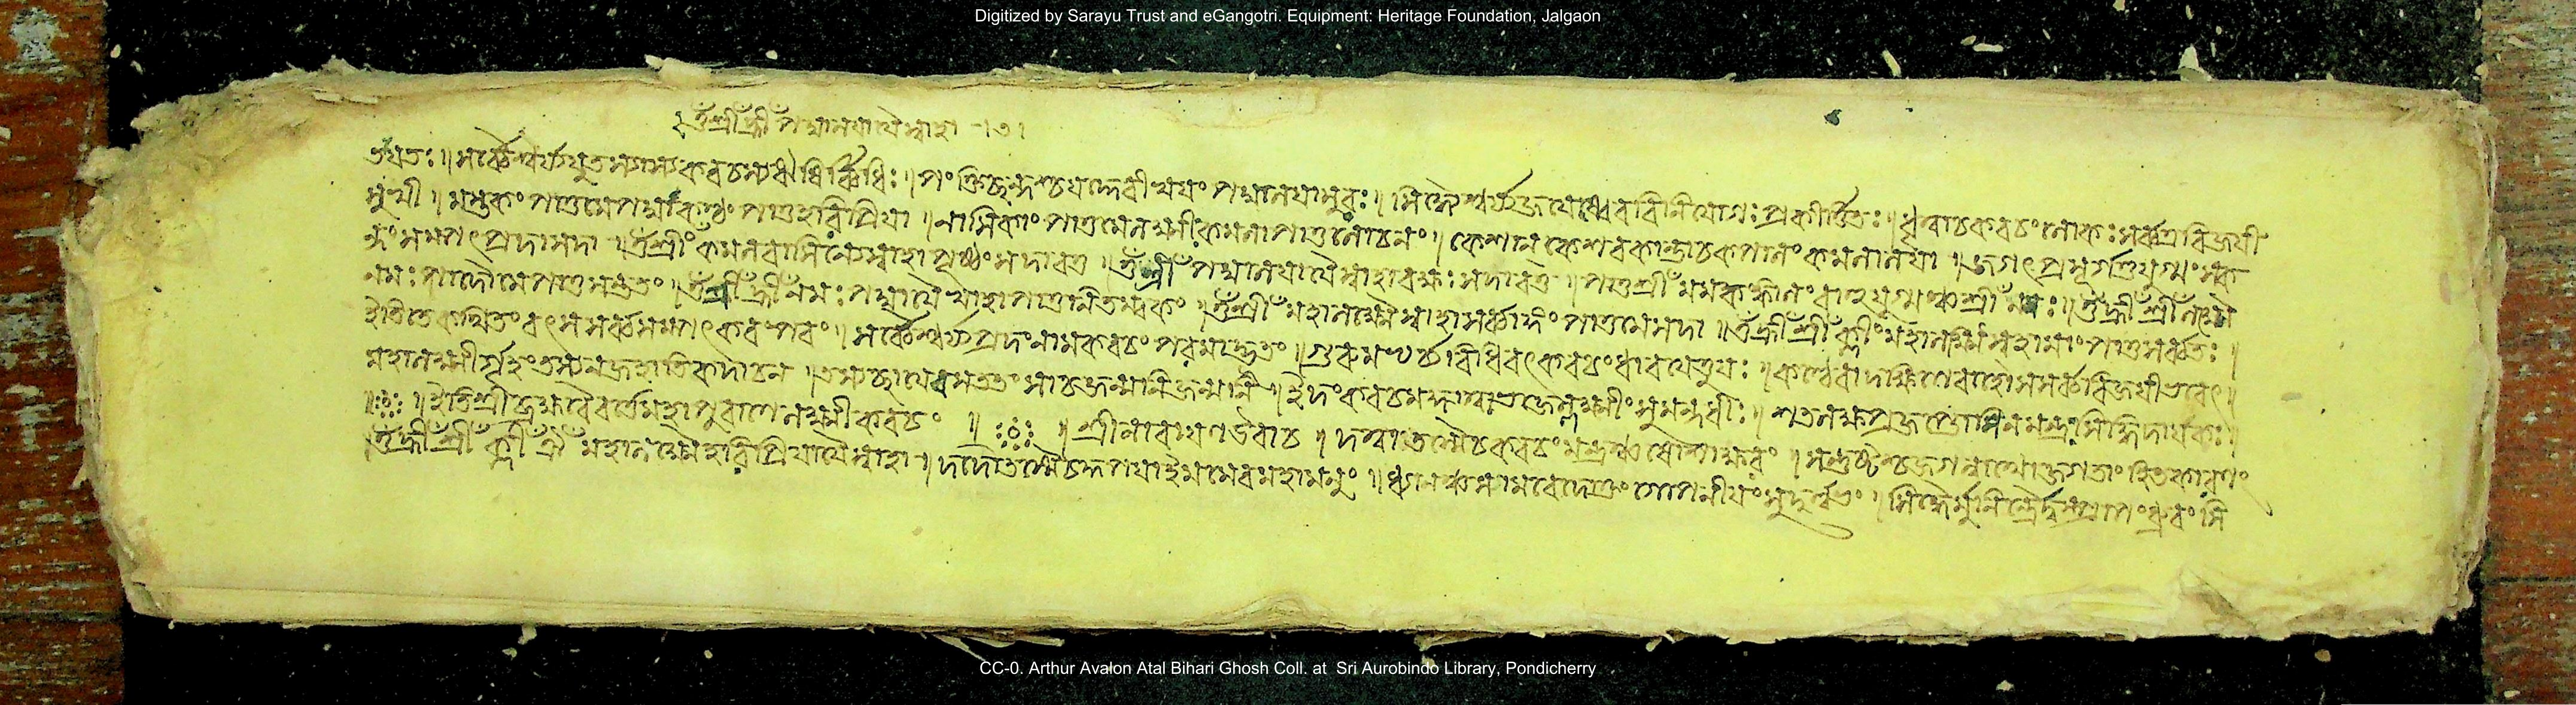 Digitized by Sarayu Trust and eGangotri. Equipment: Heritage Foundation, Jalgaon
ওঁ শ্রীঁ হ্রীঁ পদ্মালয়ায়ৈ স্বাহা ।৩।
সর্ব্বৈশ্বর্য্যযুতস্যাস্য কবচস্য ঋষির্ব্বিধিঃ ॥ পংক্তিশ্ছন্দশ্চ দেবী স্বয়ং পদ্মালয়া সুরঃ ॥ সিদ্ধৈশ্বর্য্যজয়েষ্বেব বিনিয়োগঃ প্রকীর্ত্তিতঃ ॥ ধৃত্বা চ কবচং লোকঃ সর্ব্বত্র বিজয়ী
মস্তকং পাতু মে পদ্মা কণ্ঠং পাতু হরিপ্রিয়া ॥ নাসিকাং পাতু মে লক্ষ্মীঃ কমলা পাতু লোচনং ॥ কেশান কেশবকান্তা চ কপালং কমলালয়া ॥ জগৎপ্রসূর্গণ্ডযুগ্মং স্ক
ন্ধং সম্পৎপ্রদা সদা ॥ ওঁ শ্রীঁ কমলবাসিন্যৈ স্বাহা পৃষ্ঠং সদাবতু ॥ ওঁ শ্রীঁ পদ্মালয়ায়ৈ স্বাহা বক্ষঃ সদাবতু ॥ পাতু শ্রীঁ মম কঙ্কালং বাহুযুগ্মঞ্চ শ্রীঁ নমঃ ॥ ওঁ হ্রীঁ শ্রীঁ লক্ষ্ম্যৈ
নমঃ পাদৌ মে পাতু সন্ততং ॥ ওঁ শ্রীঁ হ্রীঁ নমঃ পদ্মায়ৈ স্বাহা পাতু নিতম্বকং ॥ ওঁ শ্রীঁ মহালক্ষ্ম্যৈ স্বাহা সর্ব্বাঙ্গং পাতু মে সদা ॥ ওঁ হ্রীঁ শ্রীঁ ক্লীঁ মহালক্ষ্ম্যৈ স্বাহা মাং পাতু সর্ব্বতঃ ॥
ইতি তে কথিতং বৎস সর্ব্বসম্পৎকরং পরং ॥ সর্ব্বৈশ্বর্য্যপ্রদং নাম কবচং পরমাদ্ভুতং ॥ গুরুমভ্যর্চ্চ্য বিধিবৎ কবচং ধারয়েত্তু যঃ ॥ কণ্ঠে বা দক্ষিণে বাহৌ স সর্ব্ববিজয়ী ভবেৎ ॥
মহালক্ষ্মীর্গৃহং তস্য ন জহাতি কদাচন ॥ তস্য চ্ছায়েব সততং সা চ জন্মনি জন্মনি ॥ ইদং কবচমজ্ঞাত্বা ভজেল্লক্ষ্মীং সুমন্দধীঃ ॥ শতলক্ষপ্রজপ্তোপি ন মন্ত্রঃ সিদ্ধিদায়কঃ ॥
॥ ইতি শ্রীব্রহ্মবৈবর্ত্তে মহাপুরাণে লক্ষ্মীকবচং ॥ ॥ শ্রীনারায়ণ উবাচ ॥ দত্ত্বা তস্মৈ চ কবচং মন্ত্রঞ্চ ষোড়শাক্ষরং ॥ সন্তুষ্টশ্চ জগন্নাথো জগতাং হিতকারণং
॥ ওঁ হ্রীঁ শ্রীঁ ক্লীঁ মহালক্ষ্ম্যৈ হরিপ্রিয়ায়ৈ স্বাহা ॥ দদৌ তস্মৈ চ কৃপয়া ইমমেব মহামনুং ॥ ধ্যানঞ্চ সামবেদোক্তং গোপনীয়ং সুদুর্ল্লভং ॥ সিদ্ধৈর্মুনীন্দ্রৈর্দুষ্প্রাপ্যং ধ্রুবং সি
CC-0. Arthur Avalon Atal Bihari Ghosh Coll. at Sri Aurobindo Library, Pondicherry